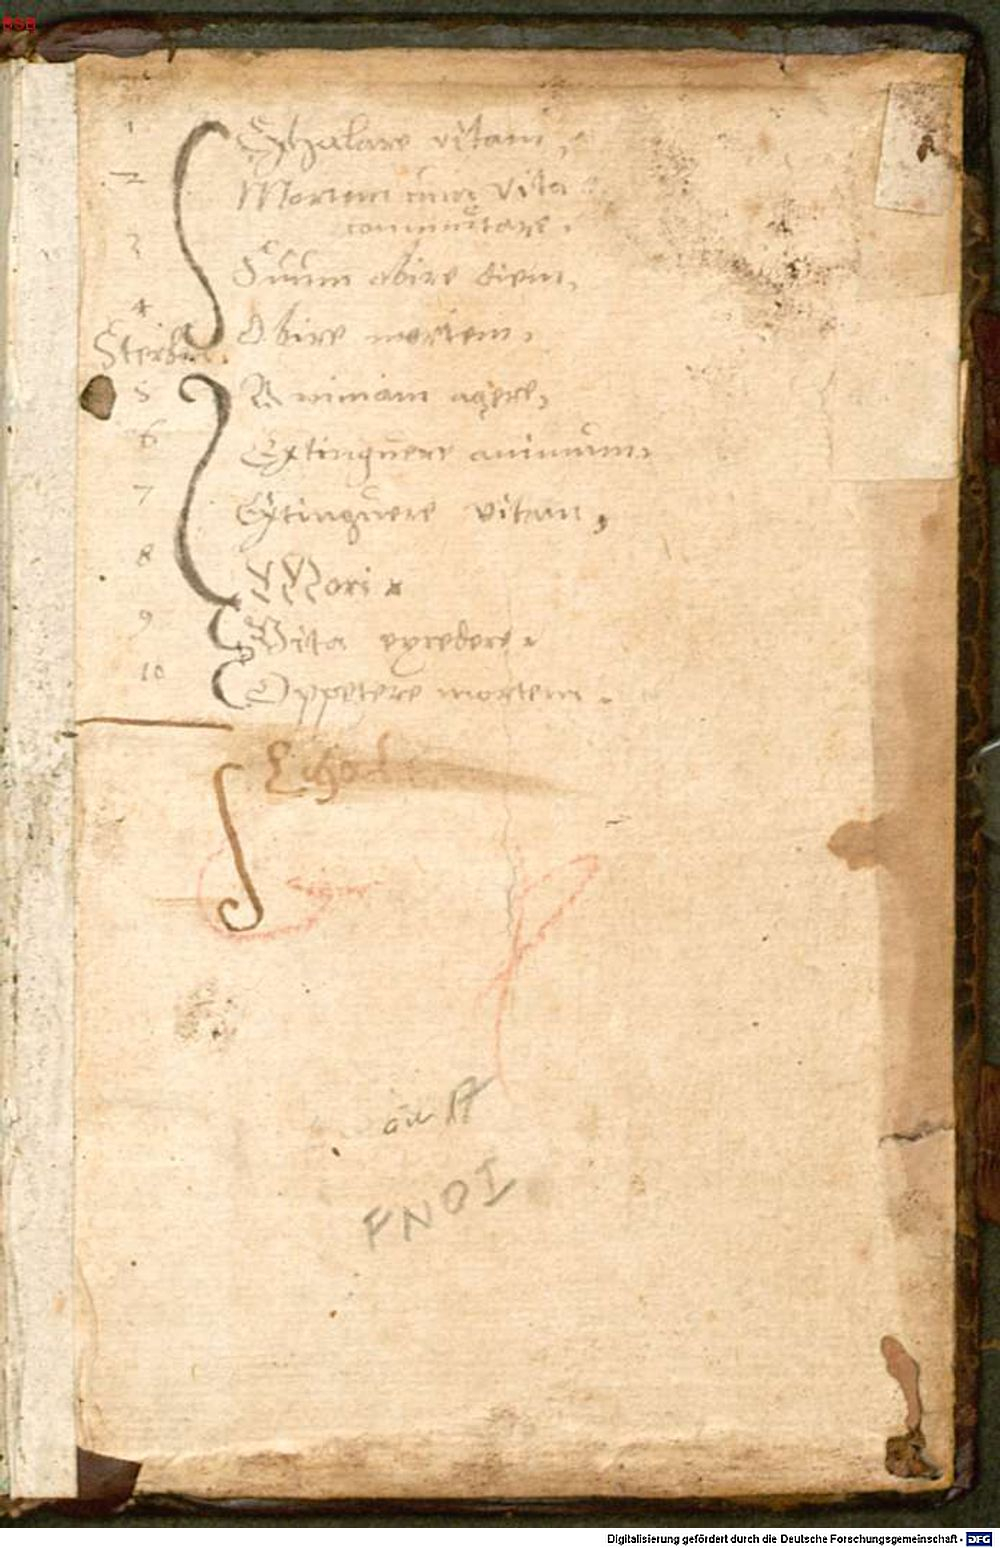 BSB
1 Exhalare vitam,
2 Mortem cum vita
commutare.
3 Suum obire diem,
4 Obire mortem,
Sterben.
5 Animam agere,
6 Extinguere animum,
7 Extinguere vitam,
8 Mori
9 Vita excedere.
10 Oppetere mortem.
FNOI
Digitalisierung gefördert durch die Deutsche Forschungsgemeinschaft - DFG